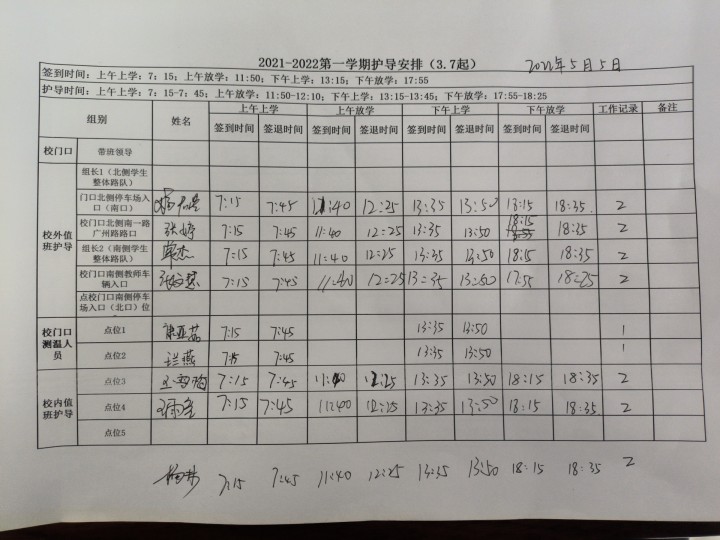 2021-2022第一学期护导安排（3.7起） 2022年5月5日
签到时间：上午上学：7：15；上午放学：11:50；下午上学：13:15；下午放学：17:55
护导时间：上午上学：7：15-7：45；上午放学：11:50-12:10；下午上学：13:15-13:45；下午放学：17:55-18:25
组别 姓名 上午上学 上午放学 下午上学 下午放学 工作记录 备注
签到时间 签退时间 签到时间 签退时间 签到时间 签退时间 签到时间 签退时间
校门口 带班领导
校外值班护导
组长1（北侧学生整体路队）
门口北侧停车场入口（南口） 7:15 7:45 11:40 12:25 13:35 13:50 18:15 18:35 2
校门口北侧南一路广州路路口 张婷 7:15 7:45 11:40 12:25 13:35 13:50 18:15 18:35 2
组长2（南侧学生整体路队） 7:15 7:45 11:40 12:25 13:35 13:50 18:15 18:35 2
校门口南侧教师车辆入口 7:15 7:45 11:40 12:25 13:35 13:50 17:55 18:25 2
点校门口南侧停车场入口（北口）位
校门口测温人员
点位1 7:15 7:45 13:35 13:50 1
点位2 兰燕 7:15 7:45 13:35 13:50 1
校内值班护导
点位3 7:15 7:45 11:40 12:25 13:35 13:50 18:15 18:35 2
点位4 7:15 7:45 11:40 12:25 13:35 13:50 18:15 18:35 2
点位5
7:15 7:45 11:40 12:25 13:35 13:50 18:15 18:35 2